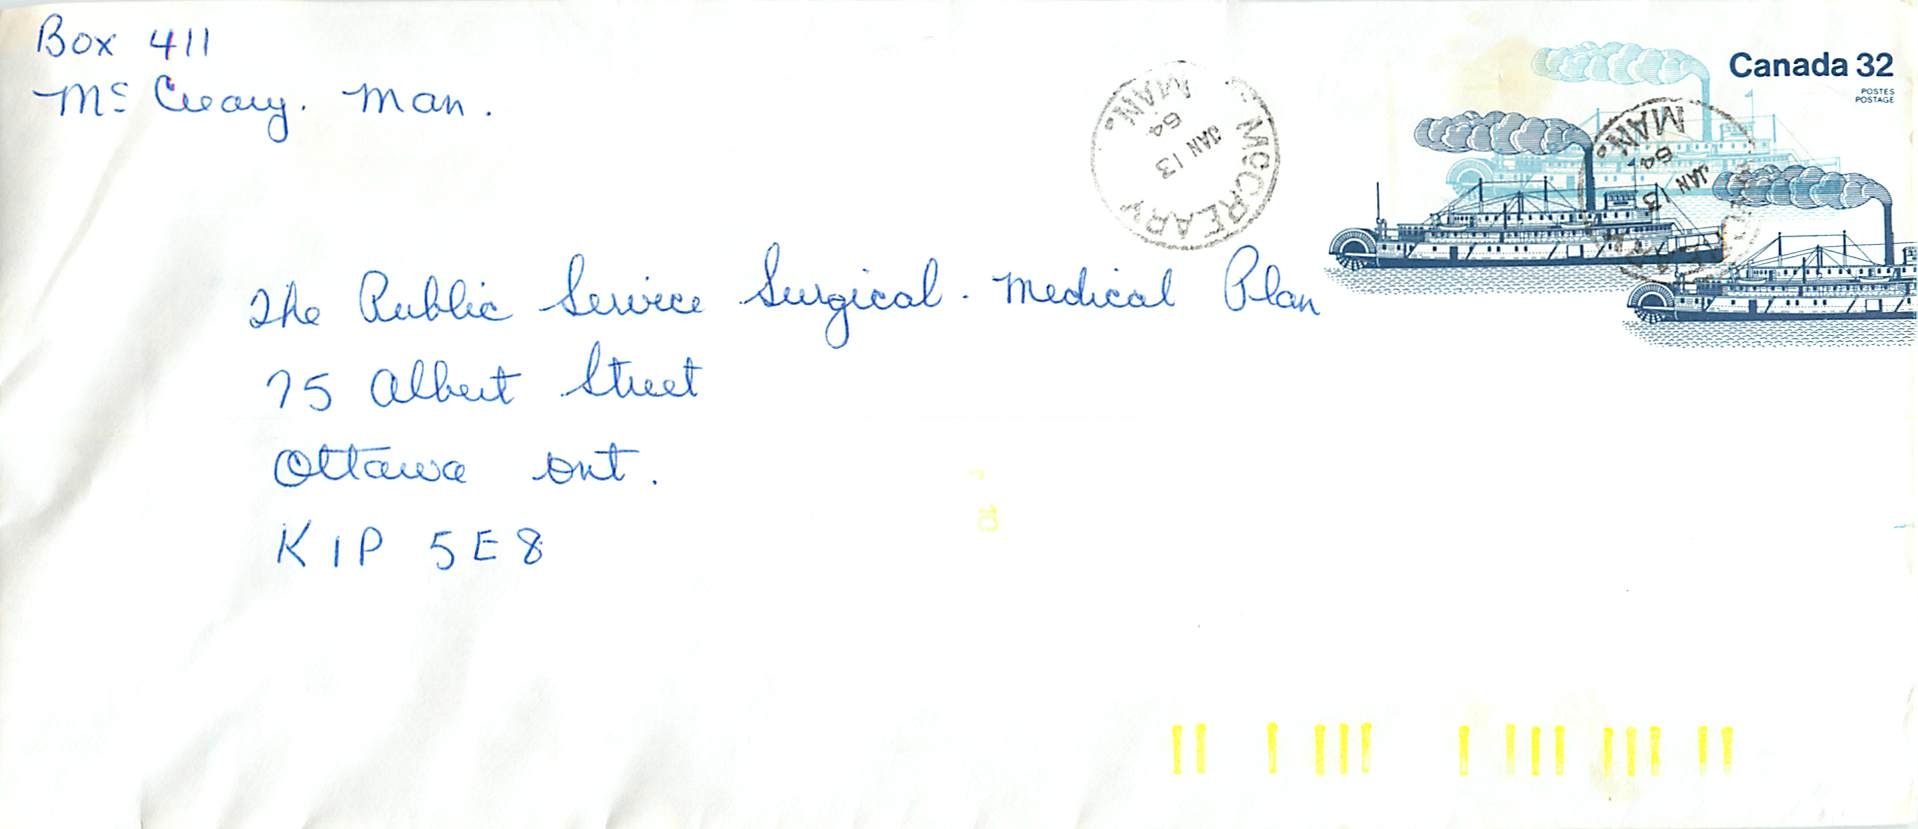 Box 411
Mc Creary. Man.
Canada 32
POSTES
POSTAGE
McCREARY
MAN.
JAN 13
64
MAN.
JAN 13
64
The Public Service Surgical - Medical Plan
75 Albert Street
Ottawa Ont.
K1P 5E8